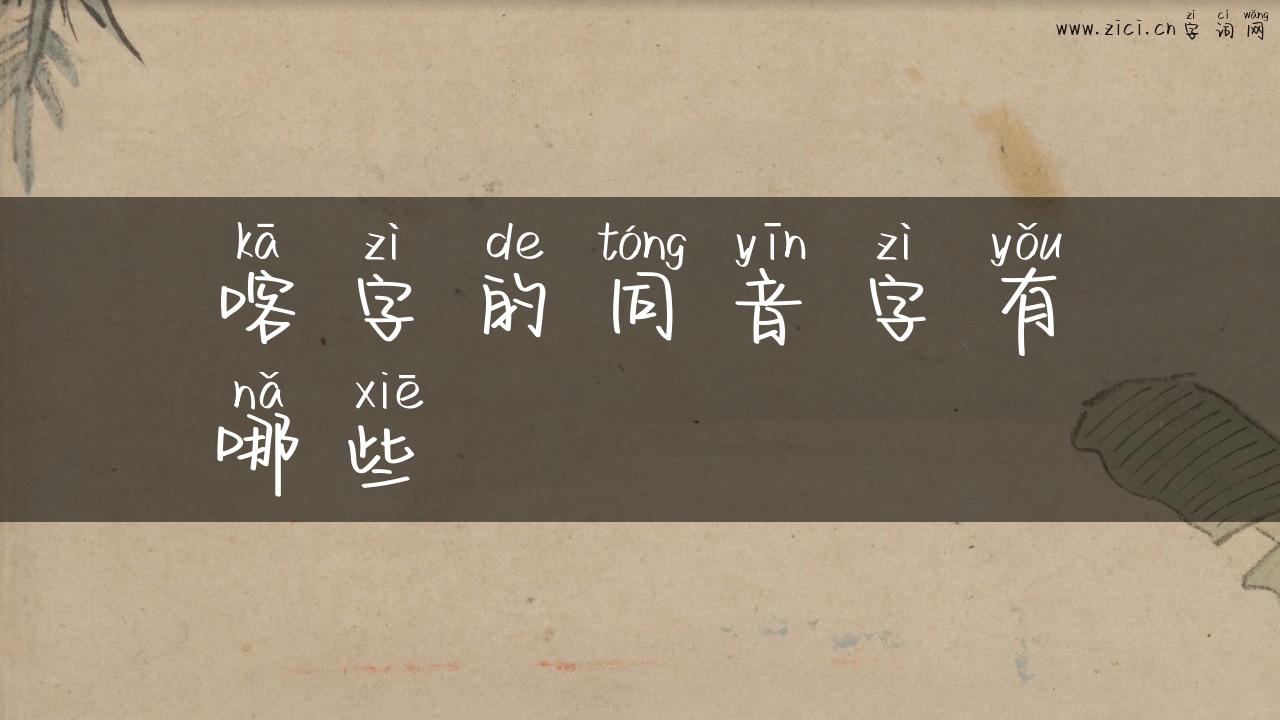 zì cí wǎng
www.zici.cn 字词网
kā zì de tóng yīn zì yǒu
喀字的同音字有
nǎ xiē
哪些